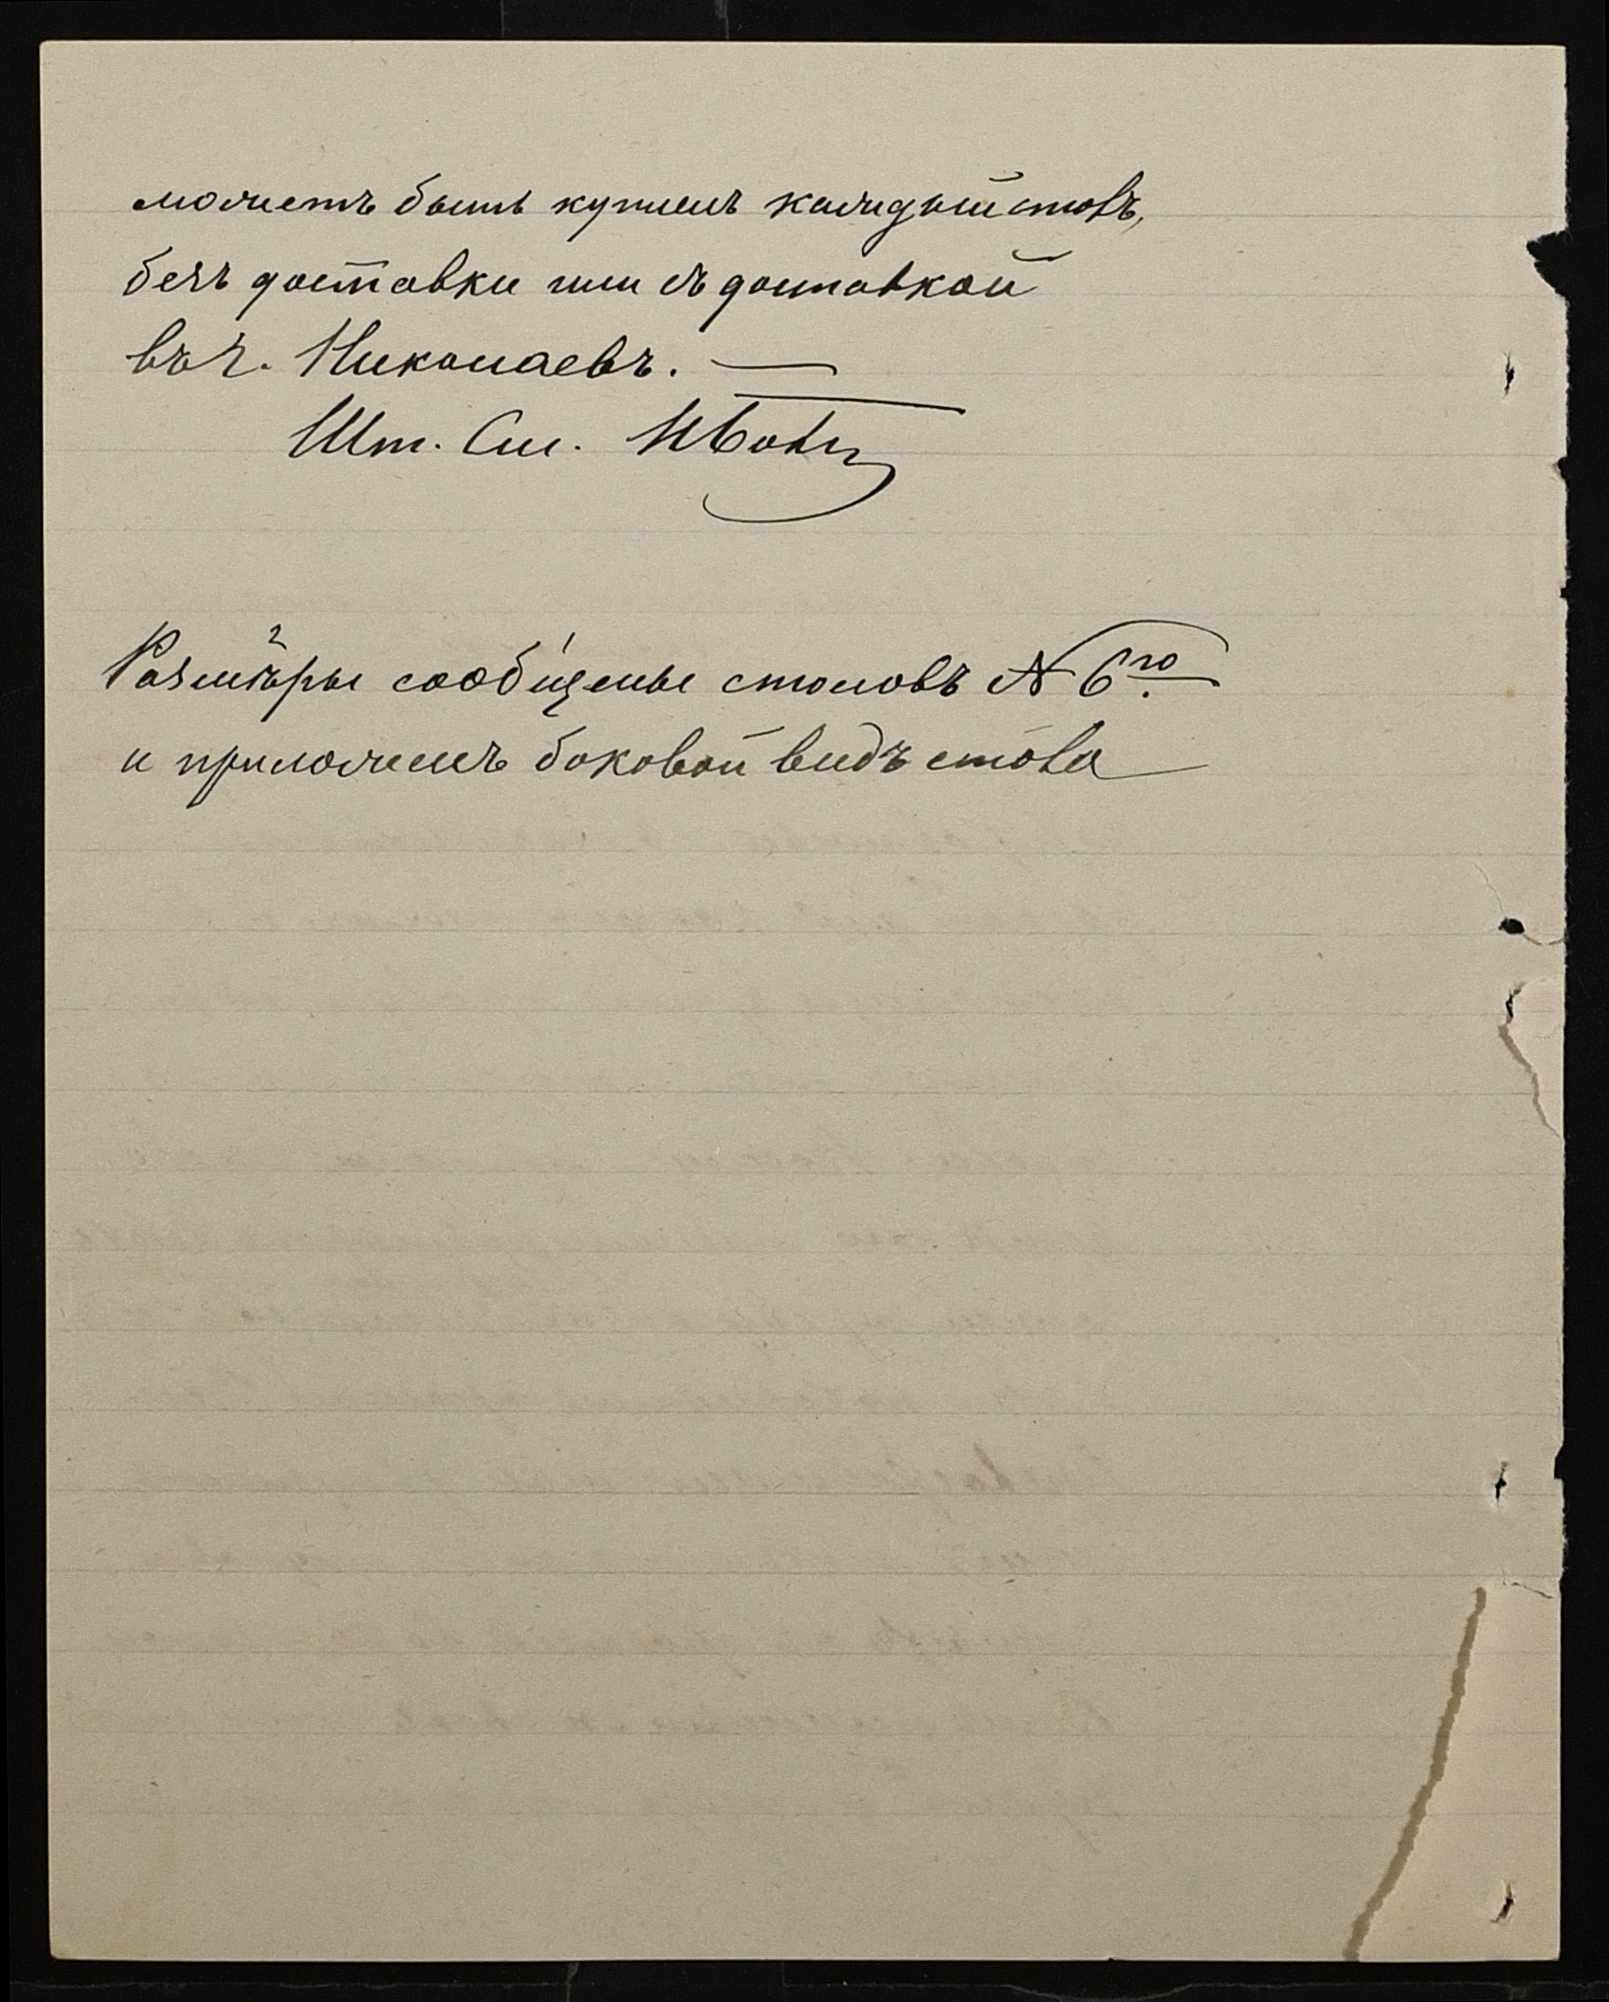 можетъ быть купленъ каждый столъ,
безъ доставки или съ доставкой
въ г. Николаевъ. —
Шт.
Размѣры сообщены столовъ № 6го
и приложенъ боковой видъ стола